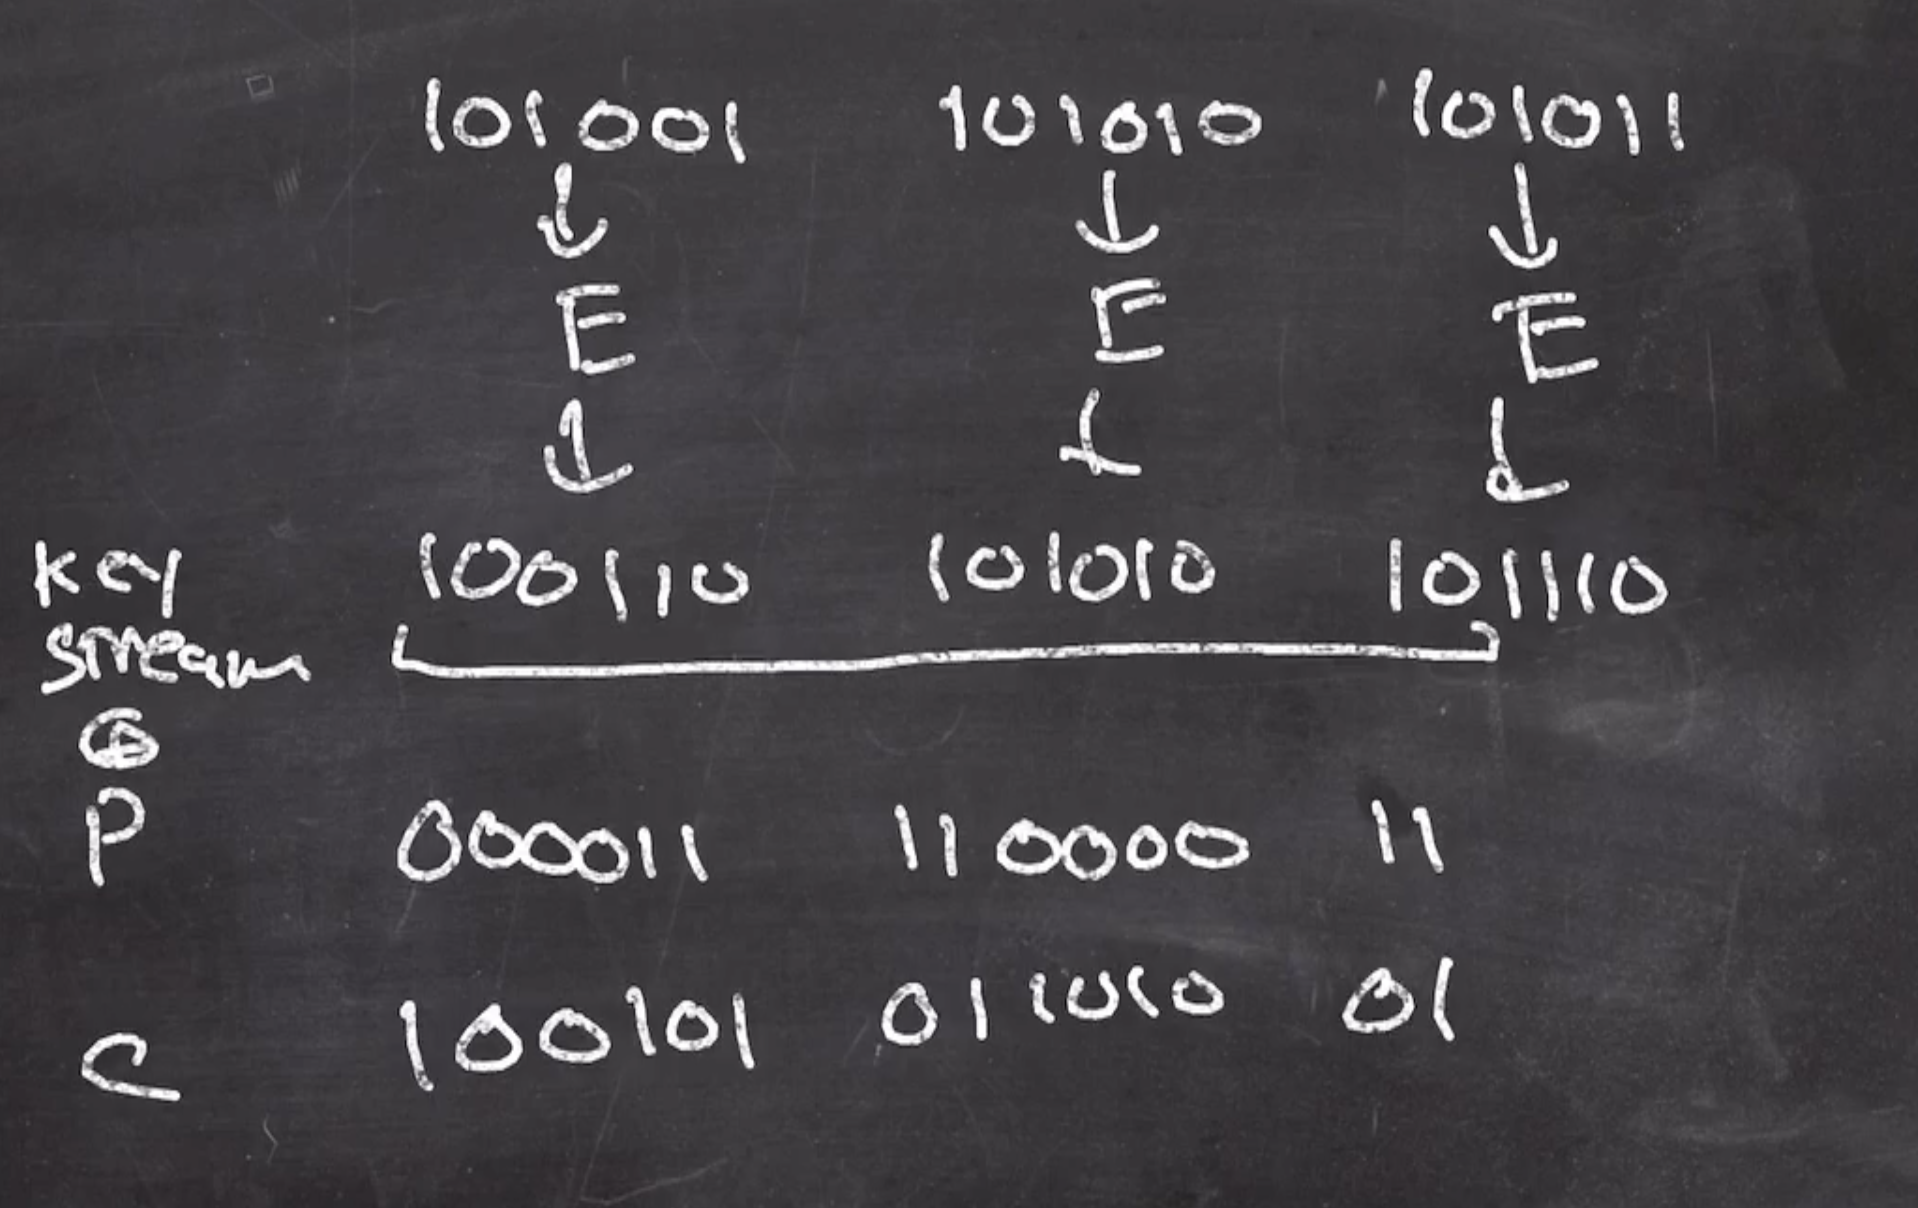 101001 101010 101011
↓ ↓ ↓
E E E
↓ ↓ ↓
key 100110 101010 101110
stream
⊕
P 000011 110000 11
C 100101 011010 01